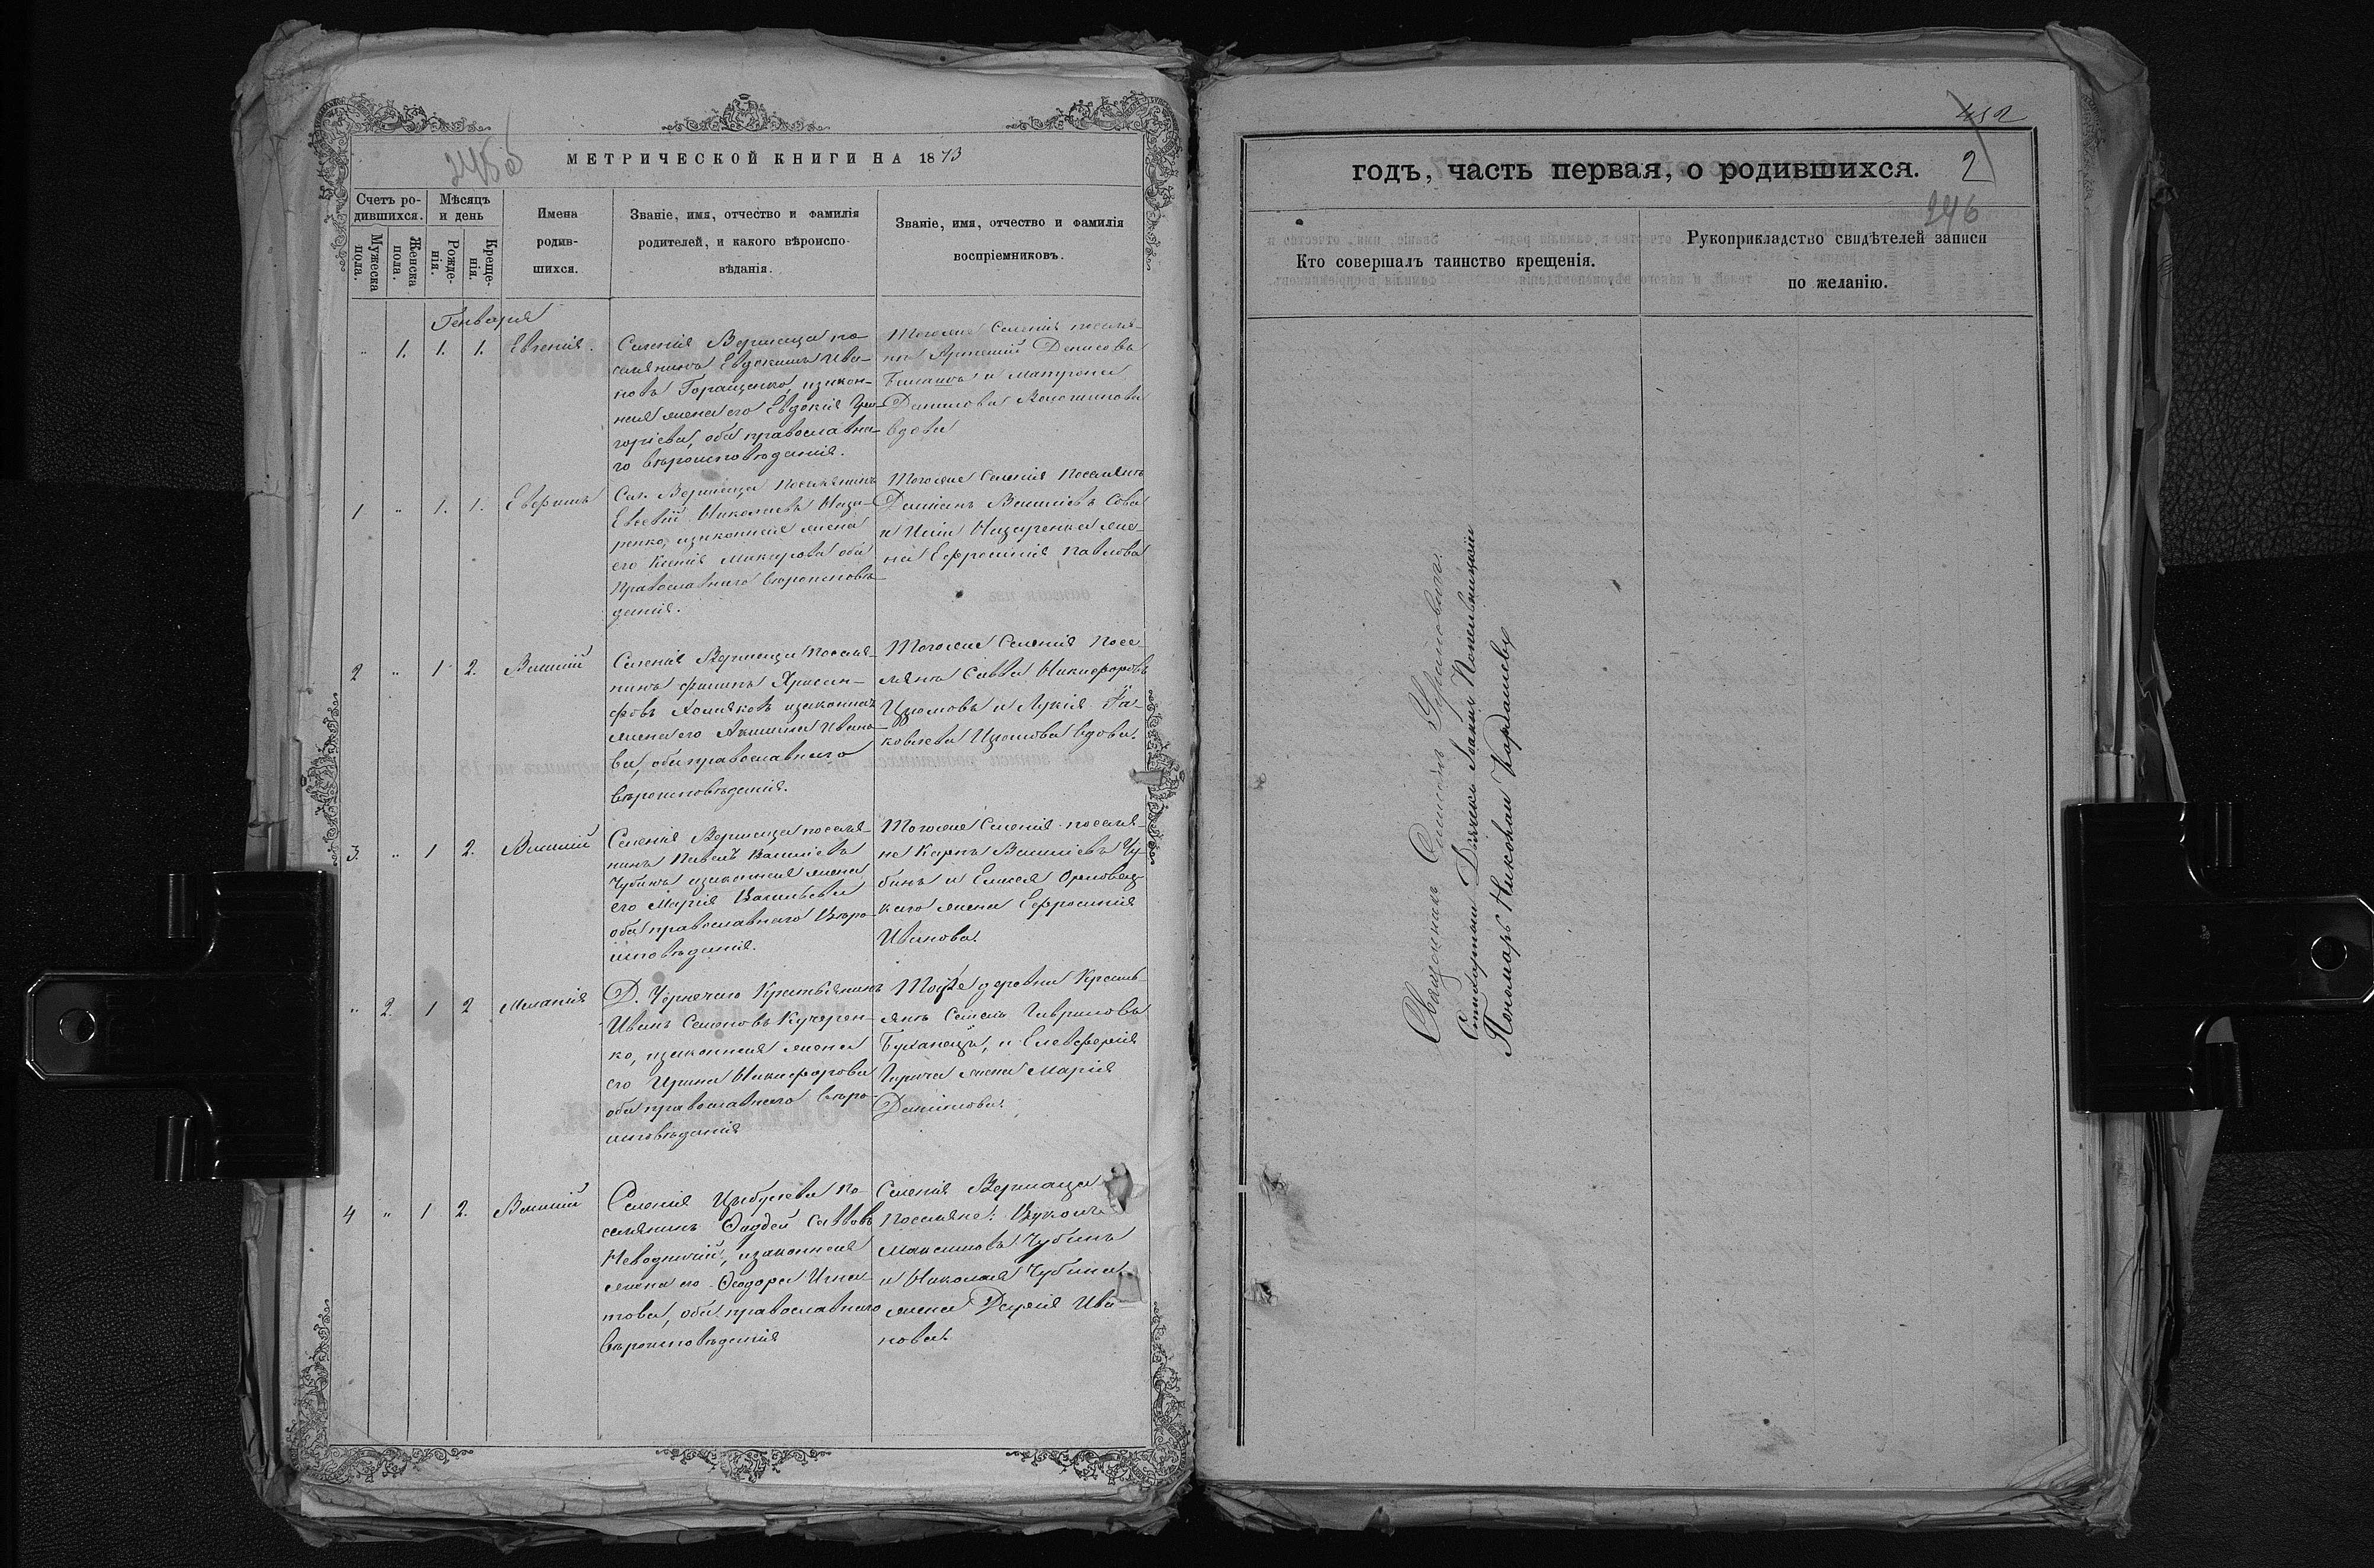 МЕТРИЧЕСКОЙ КНИГИ НА 1873
Счетъ ро-
дившихся.
Мѣсяцъ
и день
Мужеска
пола.
Женска
пола.
Рожде-
нія.
Креще-
нія.
Имена
родив-
шихся.
Званіе, имя, отчество и фамилія
родителей, и какого вѣроиспо-
вѣданія.
Званіе, имя, отчество и фамилія
воспріемниковъ.
Генваря
" 1. 1. 1. Евгенія.
Селенія Вершаца по-
селянинъ Евдокимъ Ива-
новъ Горащенко, изакон-
ная жена его Евдокія Гри-
горіева, оба православна-
го вѣроисповѣданія.
Тогоже Селенія поселя-
не Артемій Денисовъ
и Матрона
Данилова
вдова
1 " 1. 1.
Сел. Вершаца Поселянинъ
Евсевій Николаевъ Наза-
ренко, изаконная жена
его Ксенія оба
Православнаго вѣроисповѣ-
данія.
Тогоже Селенія Поселянинъ
Даміанъ Василіевъ Сова
и Назаренка же-
на Ефросинія Павлова
2 " 1 2. Василій
Селенія Вершаца Поселя-
нинъ Филипъ Хрисан-
фовъ изаконная
жена его Акилина Ивано-
ва, оба православнаго
вѣроисповѣданія.
Тогоже Селенія Посе-
лянъ Савва Никифоровъ
Изюмовъ и Лукія Іа-
ковлева Изюмова вдова.
3. " 1 2. Василій
Селенія Вершаца поселя-
нинъ Павелъ Василіевъ
Чубинъ изаконная жена
его Марія Васильева
оба православнаго Вѣро-
исповѣданія.
Тогоже Селенія поселя-
не Карпъ Василіевъ Чу-
бинъ и Елисея
жена Ефросинія
Иванова.
" 2. 1 2 Меланія
Д. Чернечаго Крестьянинъ
Иванъ Семеновъ Кучерен-
ко, изаконная жена
его Ирина Никифорова
оба православнаго вѣро-
исповѣданія
Тойже деревни Кресть-
янъ Семенъ Гавриловъ
и Елевферія
жена Марія
Данилова.
4 " 1 2. Василій
Селенія Цыбулева По-
селянинъ Фаддей Саввовъ
Неводничій, изаконная
жена его Феодора Игна-
това, оба православнаго
вѣроисповѣданія
Селенія Вершаца
Поселяне: Вуколъ
Максимовъ Чубинъ
и Николая Чубина
жена Дарія Ива-
нова.
годъ, часть первая, о родившихся.
2
246
Кто совершалъ таинство крещенія.
Рукоприкладство свидѣтелей записи
по желанію.
Священникъ
Дьячекъ Іоаннъ
Пономарь Николай Кардашевъ